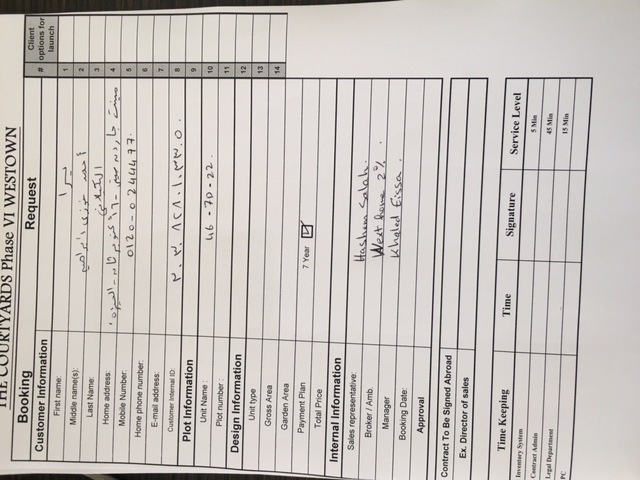 THE COURTYARDS Phase VI WESTOWN
Booking Request
Customer Information
First name: يسرا
Middle name(s): أحمد فوزى ابراهيم
Last Name: الكيلانى
Home address: جاردن سيتى - ١٦ - الجيزة
Mobile Number: 0120-0244477
Home phone number:
E-mail address:
Customer Internal ID:
Plot Information
Unit Name : 46 - 7D - 22.
Plot number :
Design Information
Unit type
Gross Area
Garden Area
Payment Plan 7 Year
Total Price
Internal Information
Sales representative: Hashem Salah.
Broker / Amb. West home 2%.
Manager Khaled Eissa.
Booking Date:
Approval
Contract To Be Signed Abroad
Ex. Director of sales
# Client options for launch
1
2
3
4
5
6
7
8
9
10
11
12
13
14
Time Keeping Time Signature Service Level
Inventory System 5 Min
Contract Admin 45 Min
Legal Department 15 Min
PC